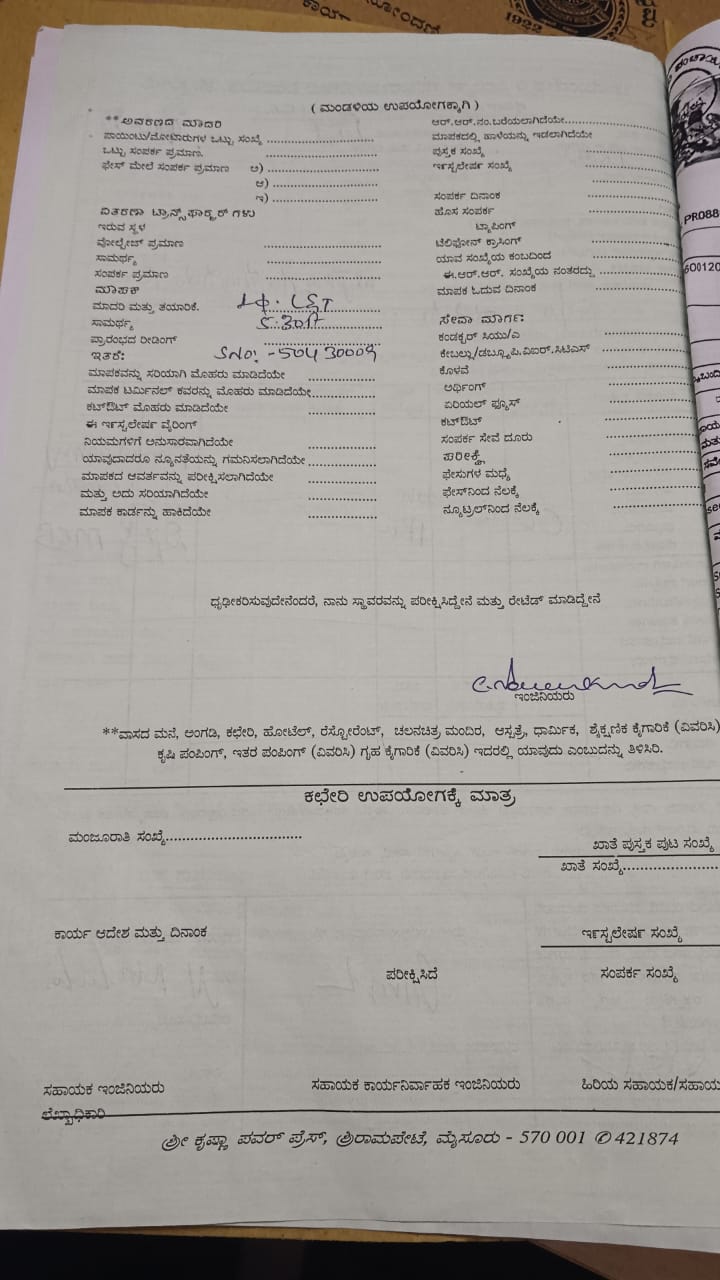 1922
( ಮಂಡಳಿಯ ಉಪಯೋಗಕ್ಕಾಗಿ )
**ಆವರಣದ ಮಾದರಿ
ಪಾಯಿಂಟು/ಮೋಟಾರುಗಳ ಒಟ್ಟು ಸಂಖ್ಯೆ ..........................
ಒಟ್ಟು ಸಂಪರ್ಕ ಪ್ರಮಾಣ. ..........................
ಫೇಸ್ ಮೇಲೆ ಸಂಪರ್ಕ ಪ್ರಮಾಣ ಅ) ..........................
ಆ) ..........................
ಇ) ..........................
ವಿತರಣಾ ಟ್ರಾನ್ಸ್‌ಫಾರ್ಮರ್ ಗಳು
ಇರುವ ಸ್ಥಳ
ವೋಲ್ಟೇಜ್ ಪ್ರಮಾಣ ..........................
ಸಾಮರ್ಥ್ಯ ..........................
ಸಂಪರ್ಕ ಪ್ರಮಾಣ ..........................
ಮಾಪಕ
ಮಾದರಿ ಮತ್ತು ತಯಾರಿಕೆ. L&T
ಸಾಮರ್ಥ್ಯ 5-30A
ಪ್ರಾರಂಭದ ರೀಡಿಂಗ್ ..........................
ಇತರೆ: SNO: -50430009
ಮಾಪಕವನ್ನು ಸರಿಯಾಗಿ ಮೊಹರು ಮಾಡಿದೆಯೇ ..................
ಮಾಪಕ ಟರ್ಮಿನಲ್ ಕವರನ್ನು ಮೊಹರು ಮಾಡಿದೆಯೇ..................
ಕಟ್‌ಔಟ್ ಮೊಹರು ಮಾಡಿದೆಯೇ ..................
ಈ ಇನ್ಸ್‌ಸ್ಟಲೇಷನ್ ವೈರಿಂಗ್
ನಿಯಮಗಳಿಗೆ ಅನುಸಾರವಾಗಿದೆಯೇ ..................
ಯಾವುದಾದರೂ ನ್ಯೂನತೆಯನ್ನು ಗಮನಿಸಲಾಗಿದೆಯೇ ..................
ಮಾಪಕದ ಆವರ್ತವನ್ನು ಪರೀಕ್ಷಿಸಲಾಗಿದೆಯೇ ..................
ಮತ್ತು ಅದು ಸರಿಯಾಗಿದೆಯೇ ..................
ಮಾಪಕ ಕಾರ್ಡನ್ನು ಹಾಕಿದೆಯೇ ..................
ಆರ್.ಆರ್.ನಂ.ಬರೆಯಲಾಗಿದೆಯೇ..................
ಮಾಪಕದಲ್ಲಿ ಹಾಳೆಯನ್ನು ಇಡಲಾಗಿದೆಯೇ
ಪುಸ್ತಕ ಸಂಖ್ಯೆ ..................
ಇನ್ಸ್‌ಸ್ಟಲೇಷನ್ ಸಂಖ್ಯೆ ..................
ಸಂಪರ್ಕ ದಿನಾಂಕ ..................
ಹೊಸ ಸಂಪರ್ಕ ..................
ಟ್ಯಾಪಿಂಗ್
ಟೆಲಿಫೋನ್ ಕ್ರಾಸಿಂಗ್ ..................
ಯಾವ ಸಂಖ್ಯೆಯ ಕಂಬದಿಂದ ..................
ಈ.ಆರ್.ಆರ್. ಸಂಖ್ಯೆಯ ನಂತರದ್ದು ..................
ಮಾಪಕ ಓದುವ ದಿನಾಂಕ ..................
ಸೇವಾ ಮಾರ್ಗ:
ಕಂಡಕ್ಟರ್ ಸಿಯು/ಎ ..................
ಕೇಬಲ್ಲು/ಡಬ್ಲ್ಯೂ.ಪಿ.ವಿಐಆರ್.ಸಿಟಿಎಸ್ ..................
ಕೊಳವೆ ..................
ಅರ್ಥಿಂಗ್ ..................
ಏರಿಯಲ್ ಫ್ಯೂಸ್ ..................
ಕಟ್‌ಔಟ್ ..................
ಸಂಪರ್ಕ ಸೇವೆ ದೂರು ..................
ಪರೀಕ್ಷೆ ..................
ಫೇಸುಗಳ ಮಧ್ಯೆ ..................
ಫೇಸ್‌ನಿಂದ ನೆಲಕ್ಕೆ ..................
ನ್ಯೂಟ್ರಲ್‌ನಿಂದ ನೆಲಕ್ಕೆ ..................
ಧೃಢೀಕರಿಸುವುದೇನೆಂದರೆ, ನಾನು ಸ್ಥಾವರವನ್ನು ಪರೀಕ್ಷಿಸಿದ್ದೇನೆ ಮತ್ತು ರೇಟೆಡ್ ಮಾಡಿದ್ದೇನೆ
ಇಂಜಿನಿಯರು
**ವಾಸದ ಮನೆ, ಅಂಗಡಿ, ಕಛೇರಿ, ಹೋಟೆಲ್, ರೆಸ್ಟೋರೆಂಟ್, ಚಲನಚಿತ್ರ ಮಂದಿರ, ಆಸ್ಪತ್ರೆ, ಧಾರ್ಮಿಕ, ಶೈಕ್ಷಣಿಕ ಕೈಗಾರಿಕೆ (ವಿವರಿಸಿ)
ಕೃಷಿ ಪಂಪಿಂಗ್, ಇತರ ಪಂಪಿಂಗ್ (ವಿವರಿಸಿ) ಗೃಹ ಕೈಗಾರಿಕೆ (ವಿವರಿಸಿ) ಇದರಲ್ಲಿ ಯಾವುದು ಎಂಬುದನ್ನು ತಿಳಿಸಿರಿ.
ಕಛೇರಿ ಉಪಯೋಗಕ್ಕೆ ಮಾತ್ರ
ಮಂಜೂರಾತಿ ಸಂಖ್ಯೆ.................................
ಖಾತೆ ಪುಸ್ತಕ ಪುಟ ಸಂಖ್ಯೆ
ಖಾತೆ ಸಂಖ್ಯೆ.......................
ಕಾರ್ಯ ಆದೇಶ ಮತ್ತು ದಿನಾಂಕ
ಇನ್ಸ್‌ಸ್ಟಲೇಷನ್ ಸಂಖ್ಯೆ
ಪರೀಕ್ಷಿಸಿದೆ
ಸಂಪರ್ಕ ಸಂಖ್ಯೆ
ಸಹಾಯಕ ಇಂಜಿನಿಯರು
ಸಹಾಯಕ ಕಾರ್ಯನಿರ್ವಾಹಕ ಇಂಜಿನಿಯರು
ಹಿರಿಯ ಸಹಾಯಕ/ಸಹಾಯ
ಲೆಖ್ಖಾಧಿಕಾರಿ
ಶ್ರೀ ಕೃಷ್ಣಾ ಪವರ್ ಪ್ರೆಸ್, ಶ್ರೀರಾಮಪೇಟೆ, ಮೈಸೂರು - 570 001 ✆421874
PR088